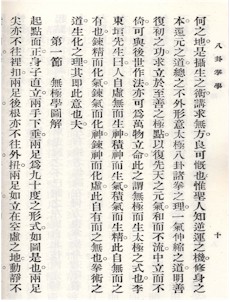 八卦拳學
十
何之地是攝生之術講求無方良可慨也惟聖人知逆運之機修身之
本還元之道總之不外形意太極八卦諸拳之理一氣伸縮之道明善
復初之功求立於至善之極點以復先天之元氣和而不流中立而不
倚可與後世作法亦可為萬物立命此之謂無極而生太極之式也李
東垣先生曰人自虛無而生神積神而生氣積氣而生精此自無而之
有也鍊精而化氣鍊氣而化神鍊神而化虛此自有而之無也拳術之
道生化之理其即此意也夫
第一節 無極學圖解
起點面正身子直立兩手下垂兩足為九十度之形式如圖是也兩足
尖亦不往裡扣兩足後根亦不往外扭兩足如立在空虛之地動靜不